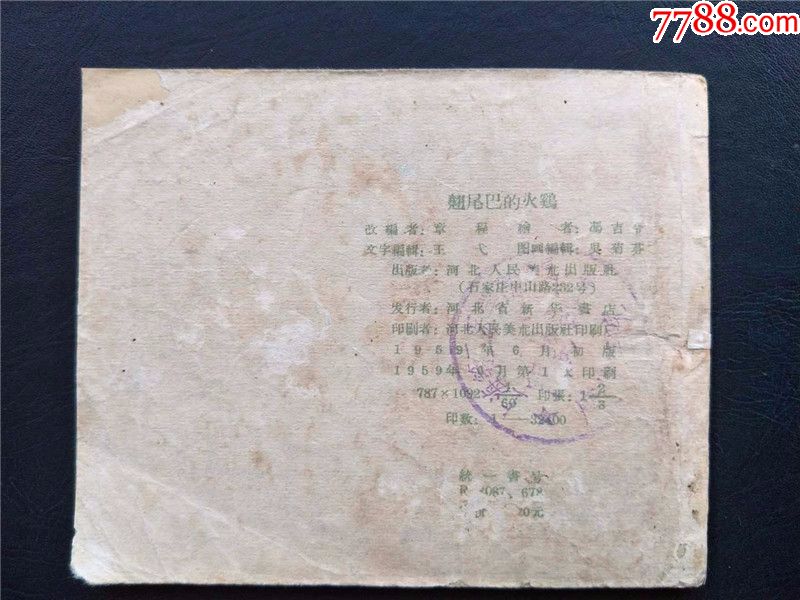 7788.com
翘尾巴的火鷄
改編者：章 程 繪 者：馮吉
文字編輯：王 弋 图画編輯：吳菊芬
出版者：河北人民美朮出版社
（石家庄中山路232号）
发行者：河北省新华書店
印刷者：河北人民美朮出版社印刷厂
1959年6月初版
1959年6月第1次印刷
787×1092 1/60 印張：1 2/3
印数：1——32400
統一書号
087·678
20元